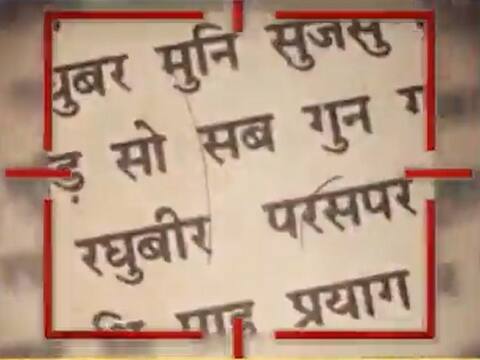 मुनि सुजसु
ड़ सो सब गुन
रघुबीर परसपर
पाइ प्रयाग